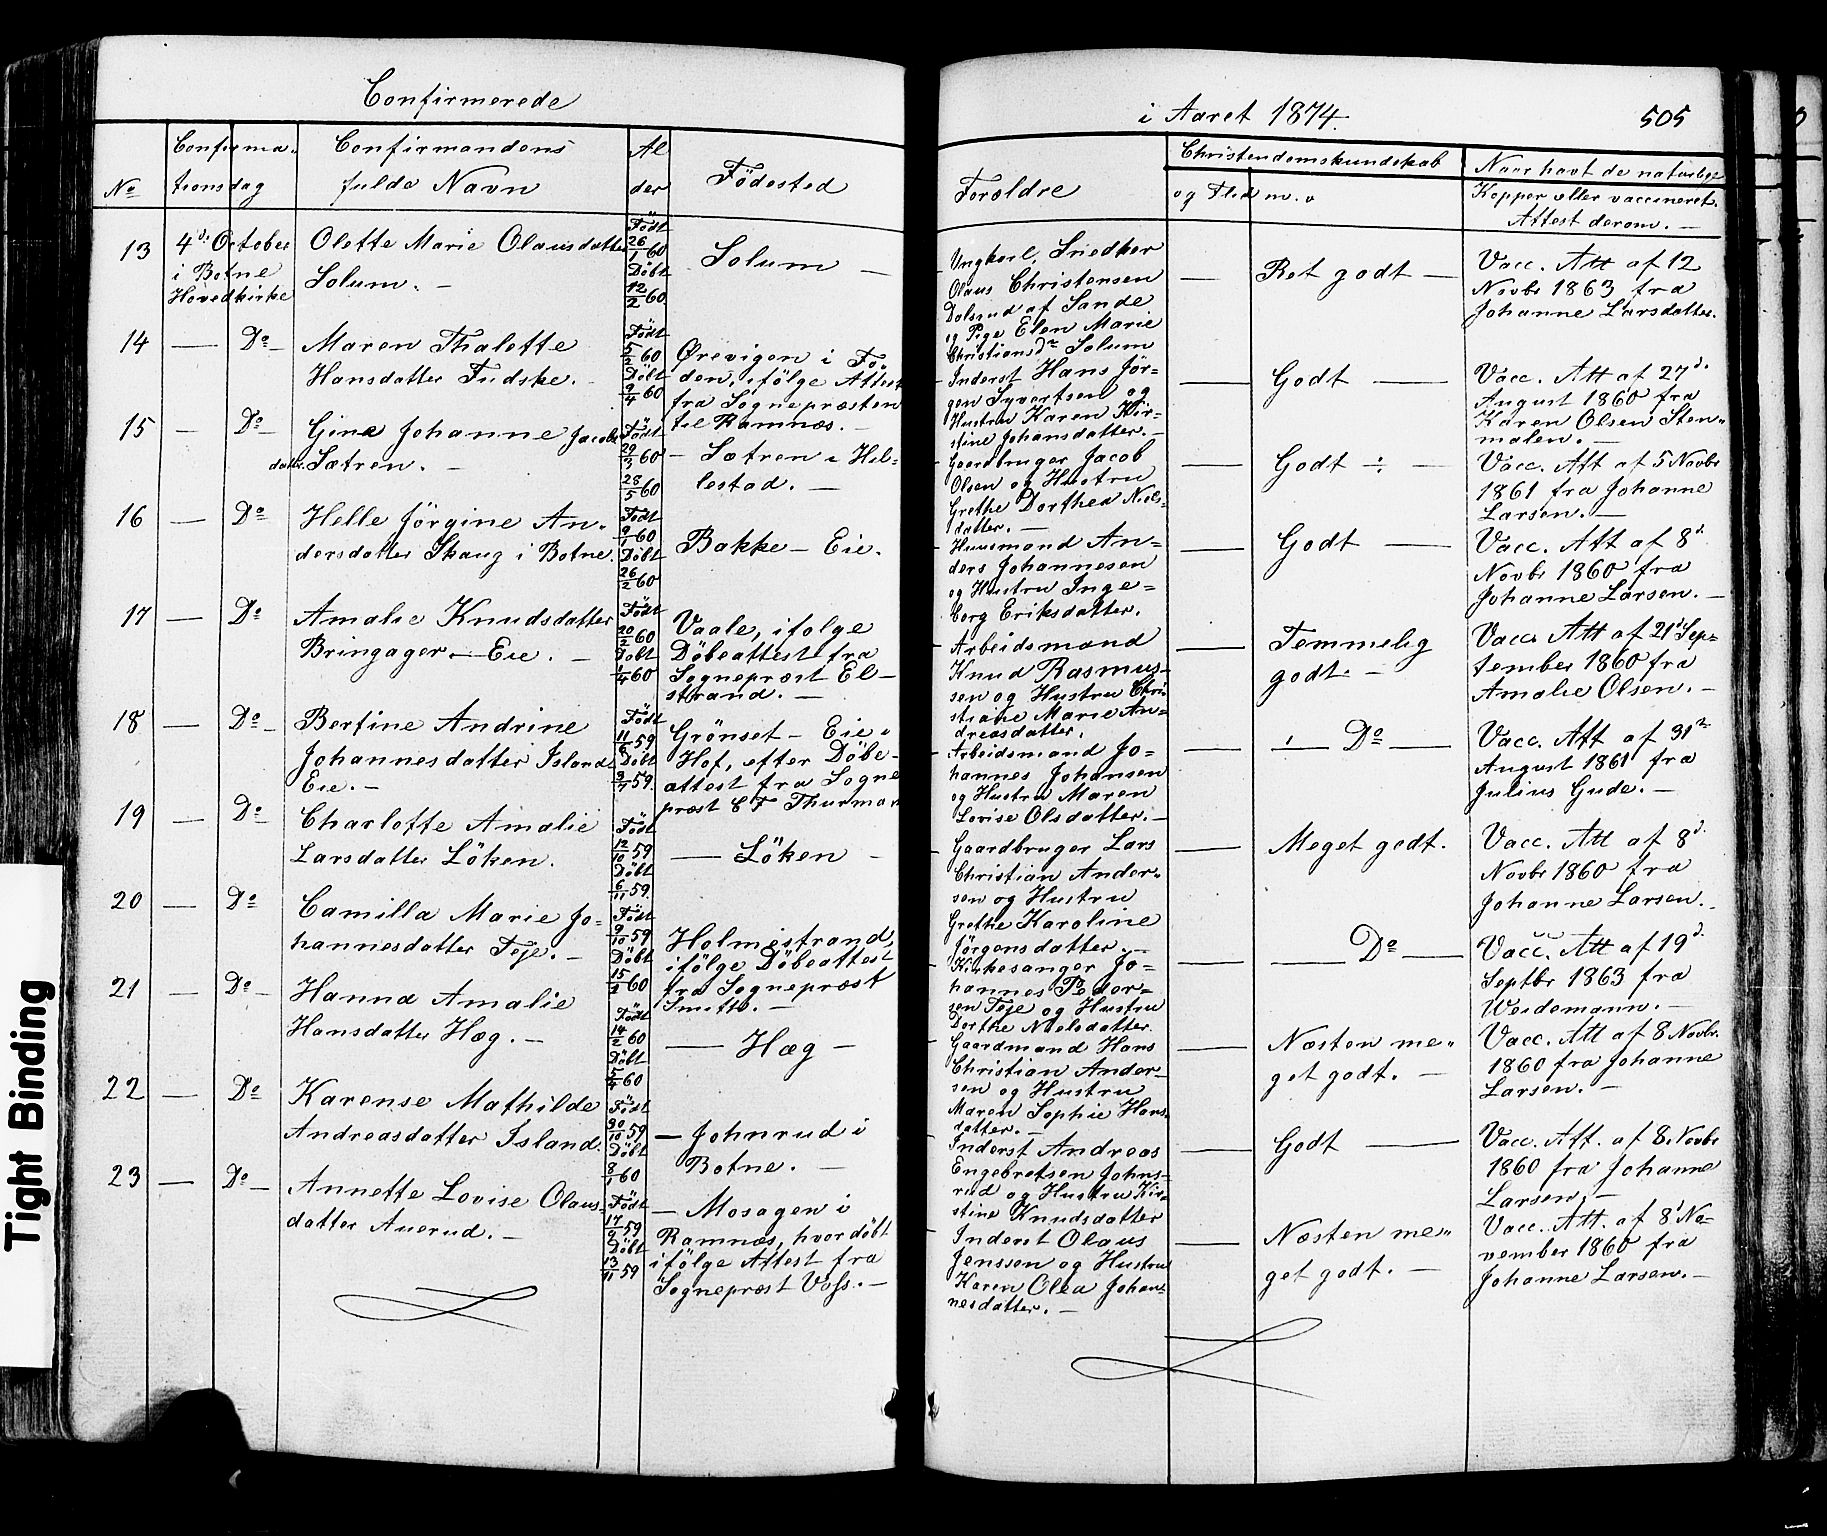 Confirmerede
i Aaret 1874.
505
No
Confirma-
tionsdag
Confirmandens
fulde Navn
Al
der
Födested
Forældre
Christendomskundskab
og Flid m. v
Naar havt de naturlige
Kopper eller vaccineret.
Attest derom. —
13
4d. October
i Botne
Hovedkirke
Olette Marie Olausdatter
Solum. —
Födt
26/1 60
Döbt
12/2 60.
Solum —
Ungkarl, Snedker
Olaus Christensen
Dalsrud af Sande
og Pige Elen Marie
Christiansdr Solum
— Ret godt —
Vacc. Att af 12
Novbr 1863 fra
Johanne Larsdatter.
14 — Do —
Maren Thalette
Hansdatter Fudske. —
Födt
5/2 60
Döbt
9/4 60
Ørevigen i Fo-
den, ifölge Attest
fra Sognepræsten
til Ramnæs. —
Inderst Hans Jör-
gen Syvertsen og
Hustru Karen Kir-
stine Johansdatter. —
— Godt —
Vacc. Att af 27d.
August 1860 fra
Karen Olsen Sten-
malen. —
15 — Do —
Gina Johanne Jacobs
datter Sætren. —
Födt
29/3 60
28/5 60
— Sætren i Hil-
lestad. —
Gaardbruger Jacob
Olsen og Hustru
Grethe Dorthea Niels-
datter. —
— Godt —
Vacc. Att af 5 Novbr
1861 fra Johanne
Larsen. —
16 — Do —
Helle Jörgine An-
dersdatter Skaug i Botne.
Födt
9/1 60
Döbt
26/2 60
Bakke — Eie.
Huusmand An-
ders Johannesen
og Hustru Inge-
borg Eriksdatter.
— Godt —
Vacc. Att af 8d
Novbr 1860 fra
Johanne Larsen. —
17 — Do
Amalie Knudsdatter
Bringager — Eie. —
Födt
20/2 60
Döbt
1/4 60
Vaale, ifolge
Döbeattest fra
Sognepræst El-
strand. —
Arbeidsmand
Knud Rasmus-
sen og Hustru Chri-
stiane Marie An-
dreasdatter.
— Temmelig
godt. —
Vacc. Att af 21d Sep-
tember 1860 fra
Amalie Olsen. —
18 — Do —
Bertine Andrine
Johannesdatter Island
Eie. —
Födt
11/6 59
Döbt
3/7 59.
Grönset — Eie i
Hof, efter Döbe-
attest fra Sogne
præst Thurman
Arbeidsmand Jo-
hannes Johansen
og Hustru Maren
Lovise Olsdatter. —
— Do —
Vacc. Att af 31te
August 1861 fra
Julius Gude. —
19 — Do —
Charlotte Amalie
Larsdatter Löken.
Födt
12/10 59
Döbt
6/11 59.
— Löken —
Gaardbruger Lars
Christian Ander-
sen og Hustru
Grethe Karoline
Jörgensdatter. —
— Meget godt.
Vacc. Att af 8d.
Novbr 1860 fra
Johanne Larsen. —
20 — Do
Camilla Marie Jo-
hannesdatter Teje. —
Födt
9/10 59
Döbt
15/2 60
Holmestrand,
ifölge Döbeattest
fra Sognepræst
Smitth. —
Kirkesanger Jo-
hannes Peder-
sen Teje og Hustru
Dorthe Nielsdatter.
— Do —
Vacc. Att af 19d.
Septbr 1863 fra
Weidemann. —
21 — Do —
Hanna Amalie
Hansdatter Hæg. —
Födt
14/2 60
Döbt
5/4 60
— Hæg —
Gaardmand Hans
Christian Ander-
sen og Hustru
Maren Sophie Hans-
datter. —
— Næsten me-
get godt. —
Vacc. Att af 8 Novbr.
1860 fra Johanne
Larsen. —
22 — Do
Karense Mathilde
Andreasdatter Island.
Födt
30/10 59
Döbt
8/1 60
— Johnrud i
Botne. —
Inderst Andreas
Engebretsen Johns-
rud og Hustru Kir-
stine Knudsdatter
— Godt —
Vacc. Att. af 8. Novbr
1860 fra Johanne
Larsen. —
23 — Do —
Annette Lovise Olaus-
datter Auerud. —
Födt
17/9 59
Döbt
13/11 59
— Mosagen i
Ramnæs, hvor döbt
ifölge Attest fra
Sognepræst Voss. —
Inderst Olaus
Jenssen og Hustru
Karen Olea Johan-
nesdatter. —
— Næsten me-
get godt. —
Vacc. Att. af 8d No-
vember 1860 fra
Johanne Larsen. —
Tight Binding